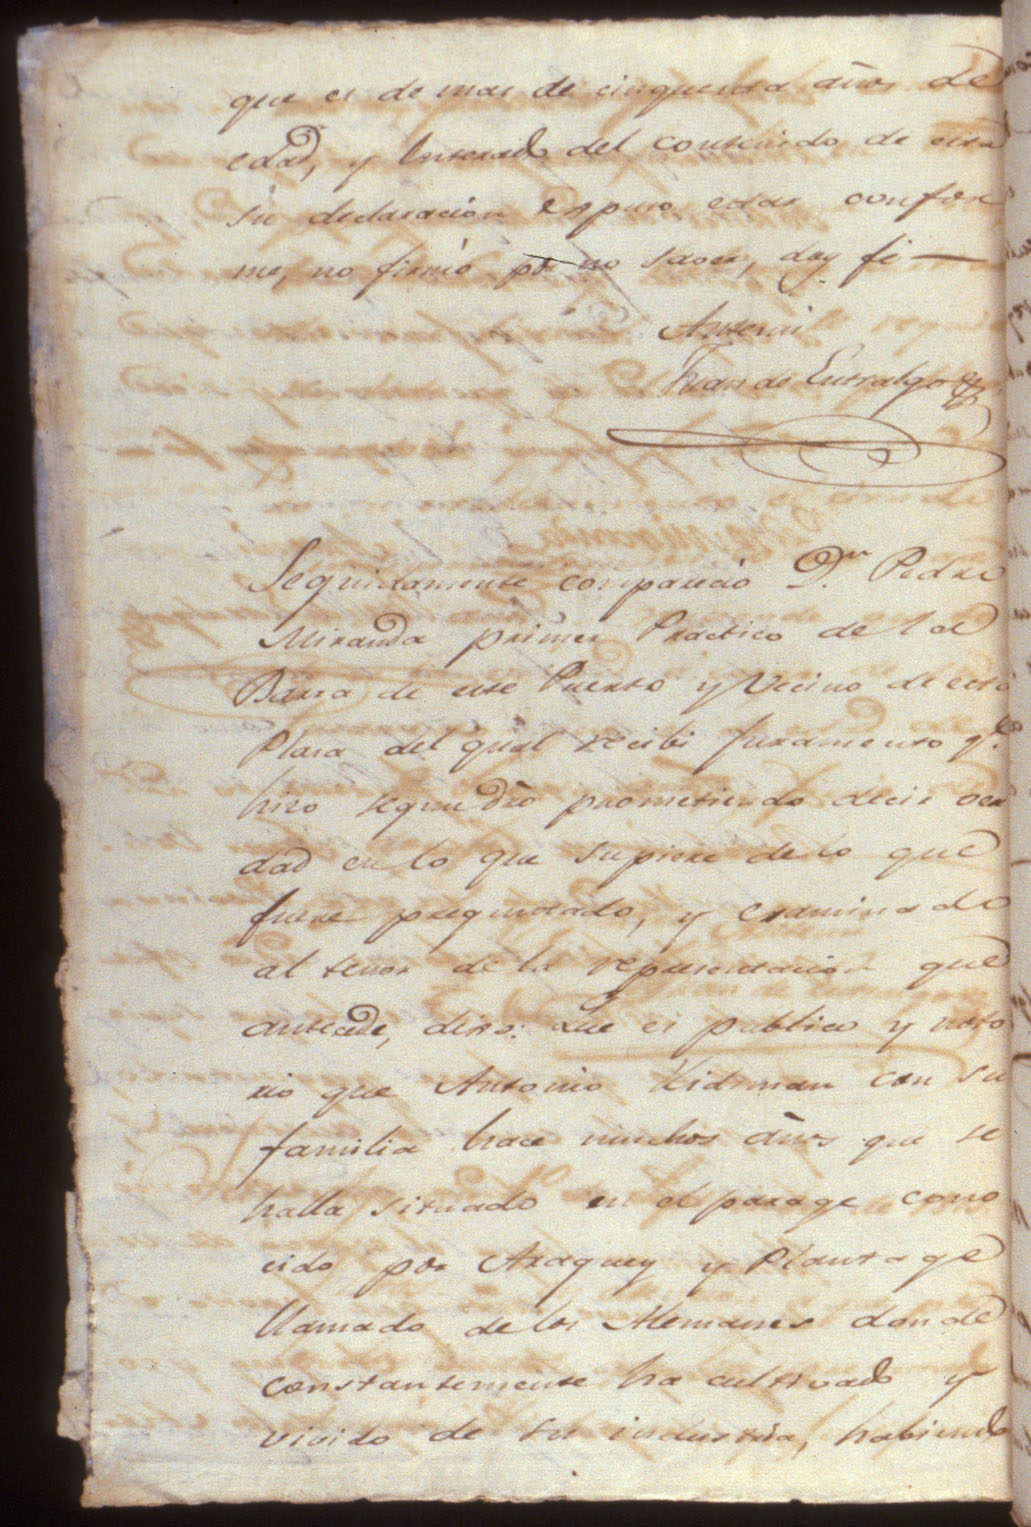 que es de mas de cinquenta años de
edad, y Enterado del contenido de esta
su declaracion espuso estar confor
me, no firmó por no saver, doy fé —
Ante mi
Juan de Entralgo
Seguidamente comparecio D.n Pedro
Miranda primer Practico de la
Barra de este Puerto y Vecino de esta
Plaza del qual recibi juramento q.e
hizo segun dro prometiendo decir ver
dad en lo que supiere de lo que
fuere preguntado, y examinado
al tenor de la representacion que
antecede, dixo: Que es publico y noto
rio que Antonio Kidsman con su
familia hace muchos años que se
halla situado en el parage cono
cido por Araquey y Plantage
llamado de los Alemanes donde
constantemente ha cultivado y
vivido de su industria, habiendo